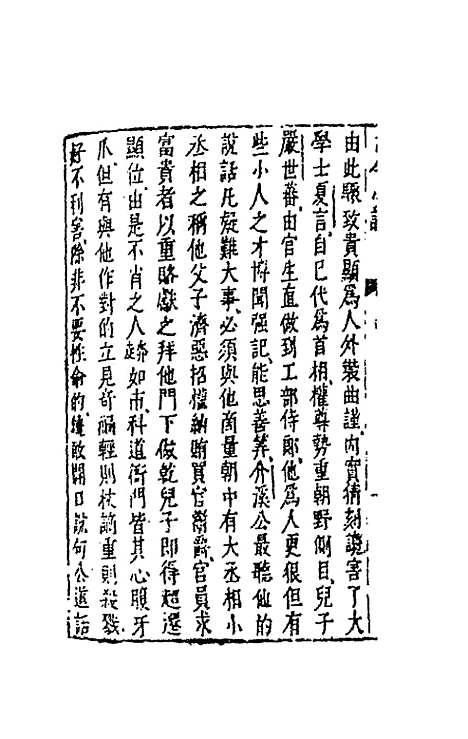 由此驟致貴顯為人外裝曲謹内實猜刻讒害了大
學士夏言自己代為首相權尊勢重朝野側目兒子
嚴世蕃由官生直做到工部侍郎他為人更狠但有
些小人之才博聞强記能思善筭介溪公最聽他的
說話凡疑難大事必須與他商量朝中有大丞相小
丞相之稱他父子濟惡招權納賄買官鬻爵官員求
富貴者以重賂獻之拜他門下做乾兒子即得超遷
顯位由是不肖之人奔走如市科道衙門皆其心腹牙
爪但有與他作對的立見奇禍輕則杖謫重則殺戮
好不利害除非不要性命的纔敢開口說句公道話